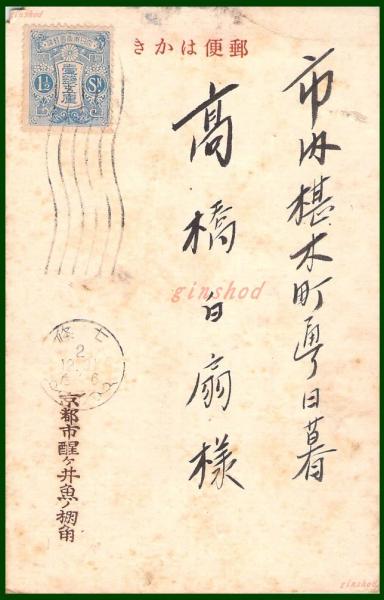 ginshod
きかは便郵
市内椹木町通リ日暮
高橋白扇様
1½ Sn.
ginshod
七條
2
京都市醒ヶ井魚ノ棚角
ginshod